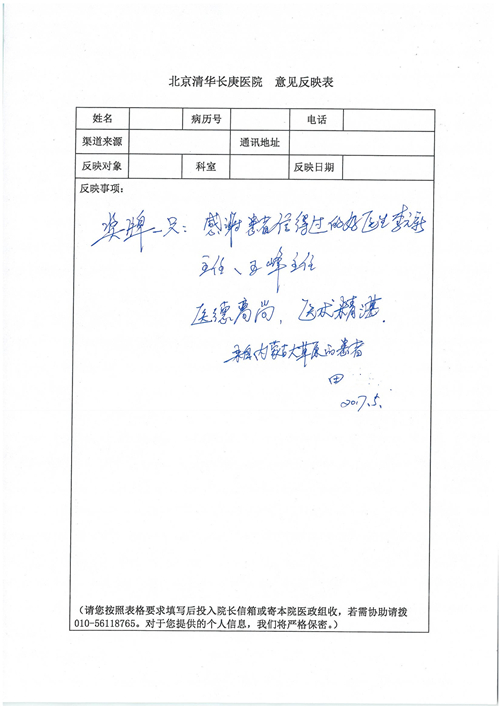 北京清华长庚医院 意见反映表
姓名 病历号 电话
渠道来源 通讯地址
反映对象 科室 反映日期
反映事项：
奖牌一只：感谢患者信得过的好医生李元新
主任、王峰主任
医德高尚，医术精湛.
来自内蒙古大草原的患者
田
2017.5.
（请您按照表格要求填写后投入院长信箱或寄本院医政组收，若需协助请拨
010-56118765。对于您提供的个人信息，我们将严格保密。）